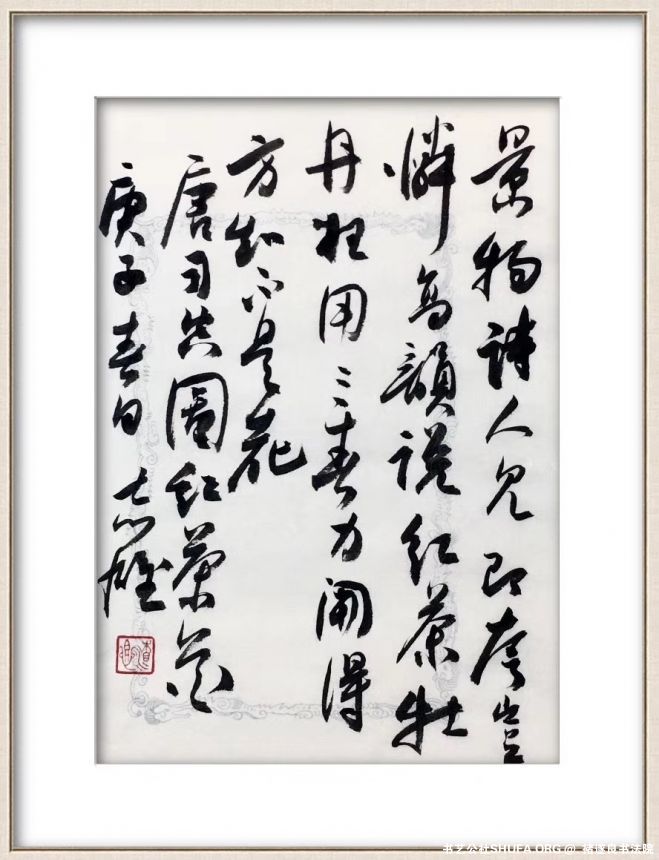 景物詩人见即夸豈
憐高韻說紅茶牡
丹枉用三春力開得
方知不是花
唐司空圖紅茶花
庚子春日 志雄
书艺公社SHUFA.ORG @_褚遂良书法院